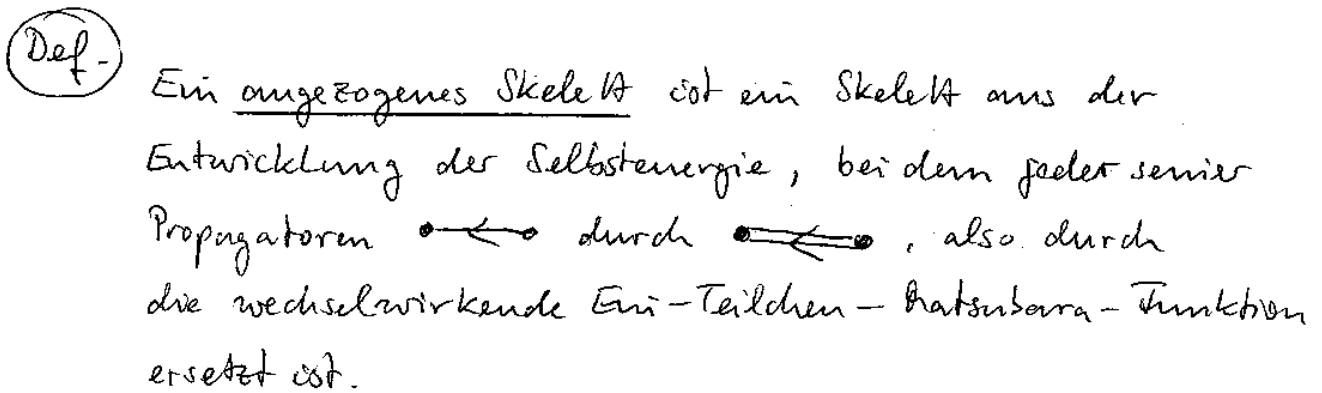 Def.
Ein angezogenes Skelett ist ein Skelett aus der
Entwicklung der Selbstenergie, bei dem jeder seiner
Propagatoren durch , also durch
die wechselwirkende Ein-Teilchen-Matsubara-Funktion
ersetzt ist.